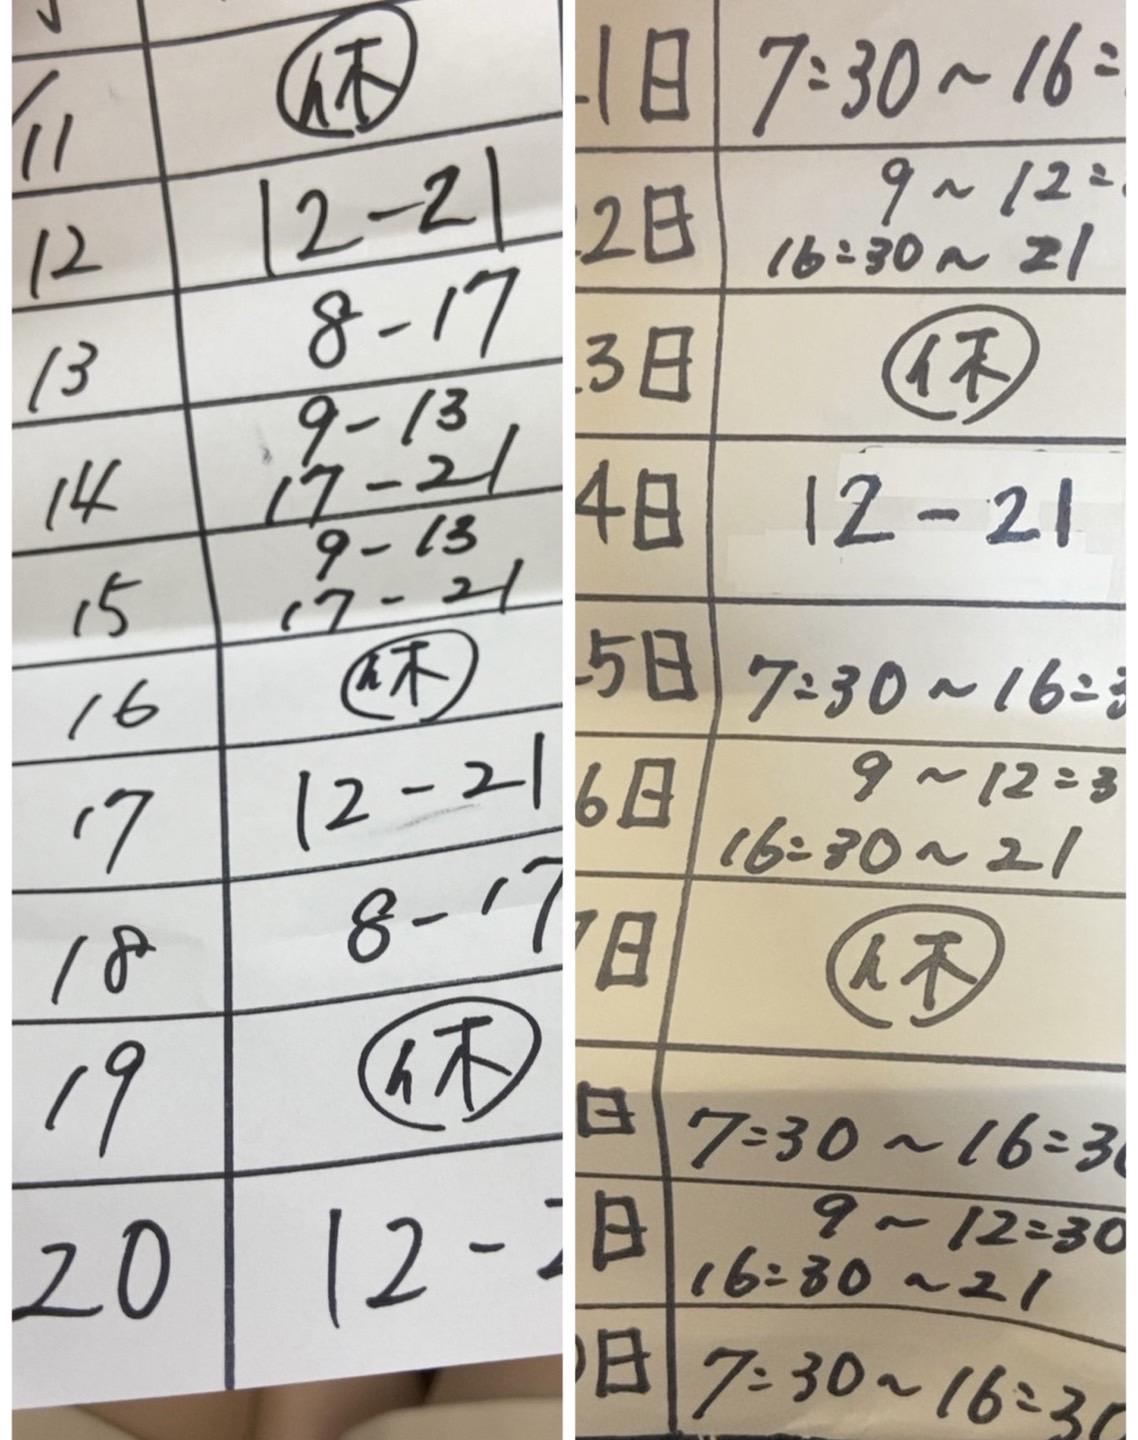 11 休
12 12-21
13 8-17
14 9-13
17-21
15 9-13
17-21
16 休
17 12-21
18 8-17
19 休
20 12-
1日 7:30~16:
2日 9~12:
16:30~21
3日 休
4日 12-21
5日 7:30~16:3
6日 9~12:3
16:30~21
7日 休
日 7:30~16:30
日 9~12:30
16:30~21
日 7:30~16:30